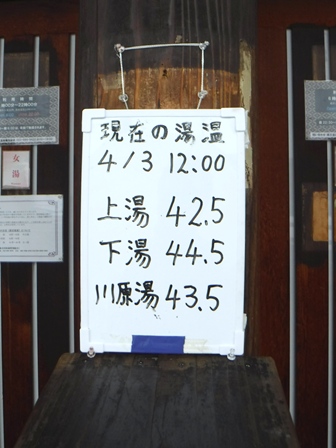 現在の湯温
4/3 12:00
上湯 42.5
下湯 44.5
川原湯 43.5
女湯